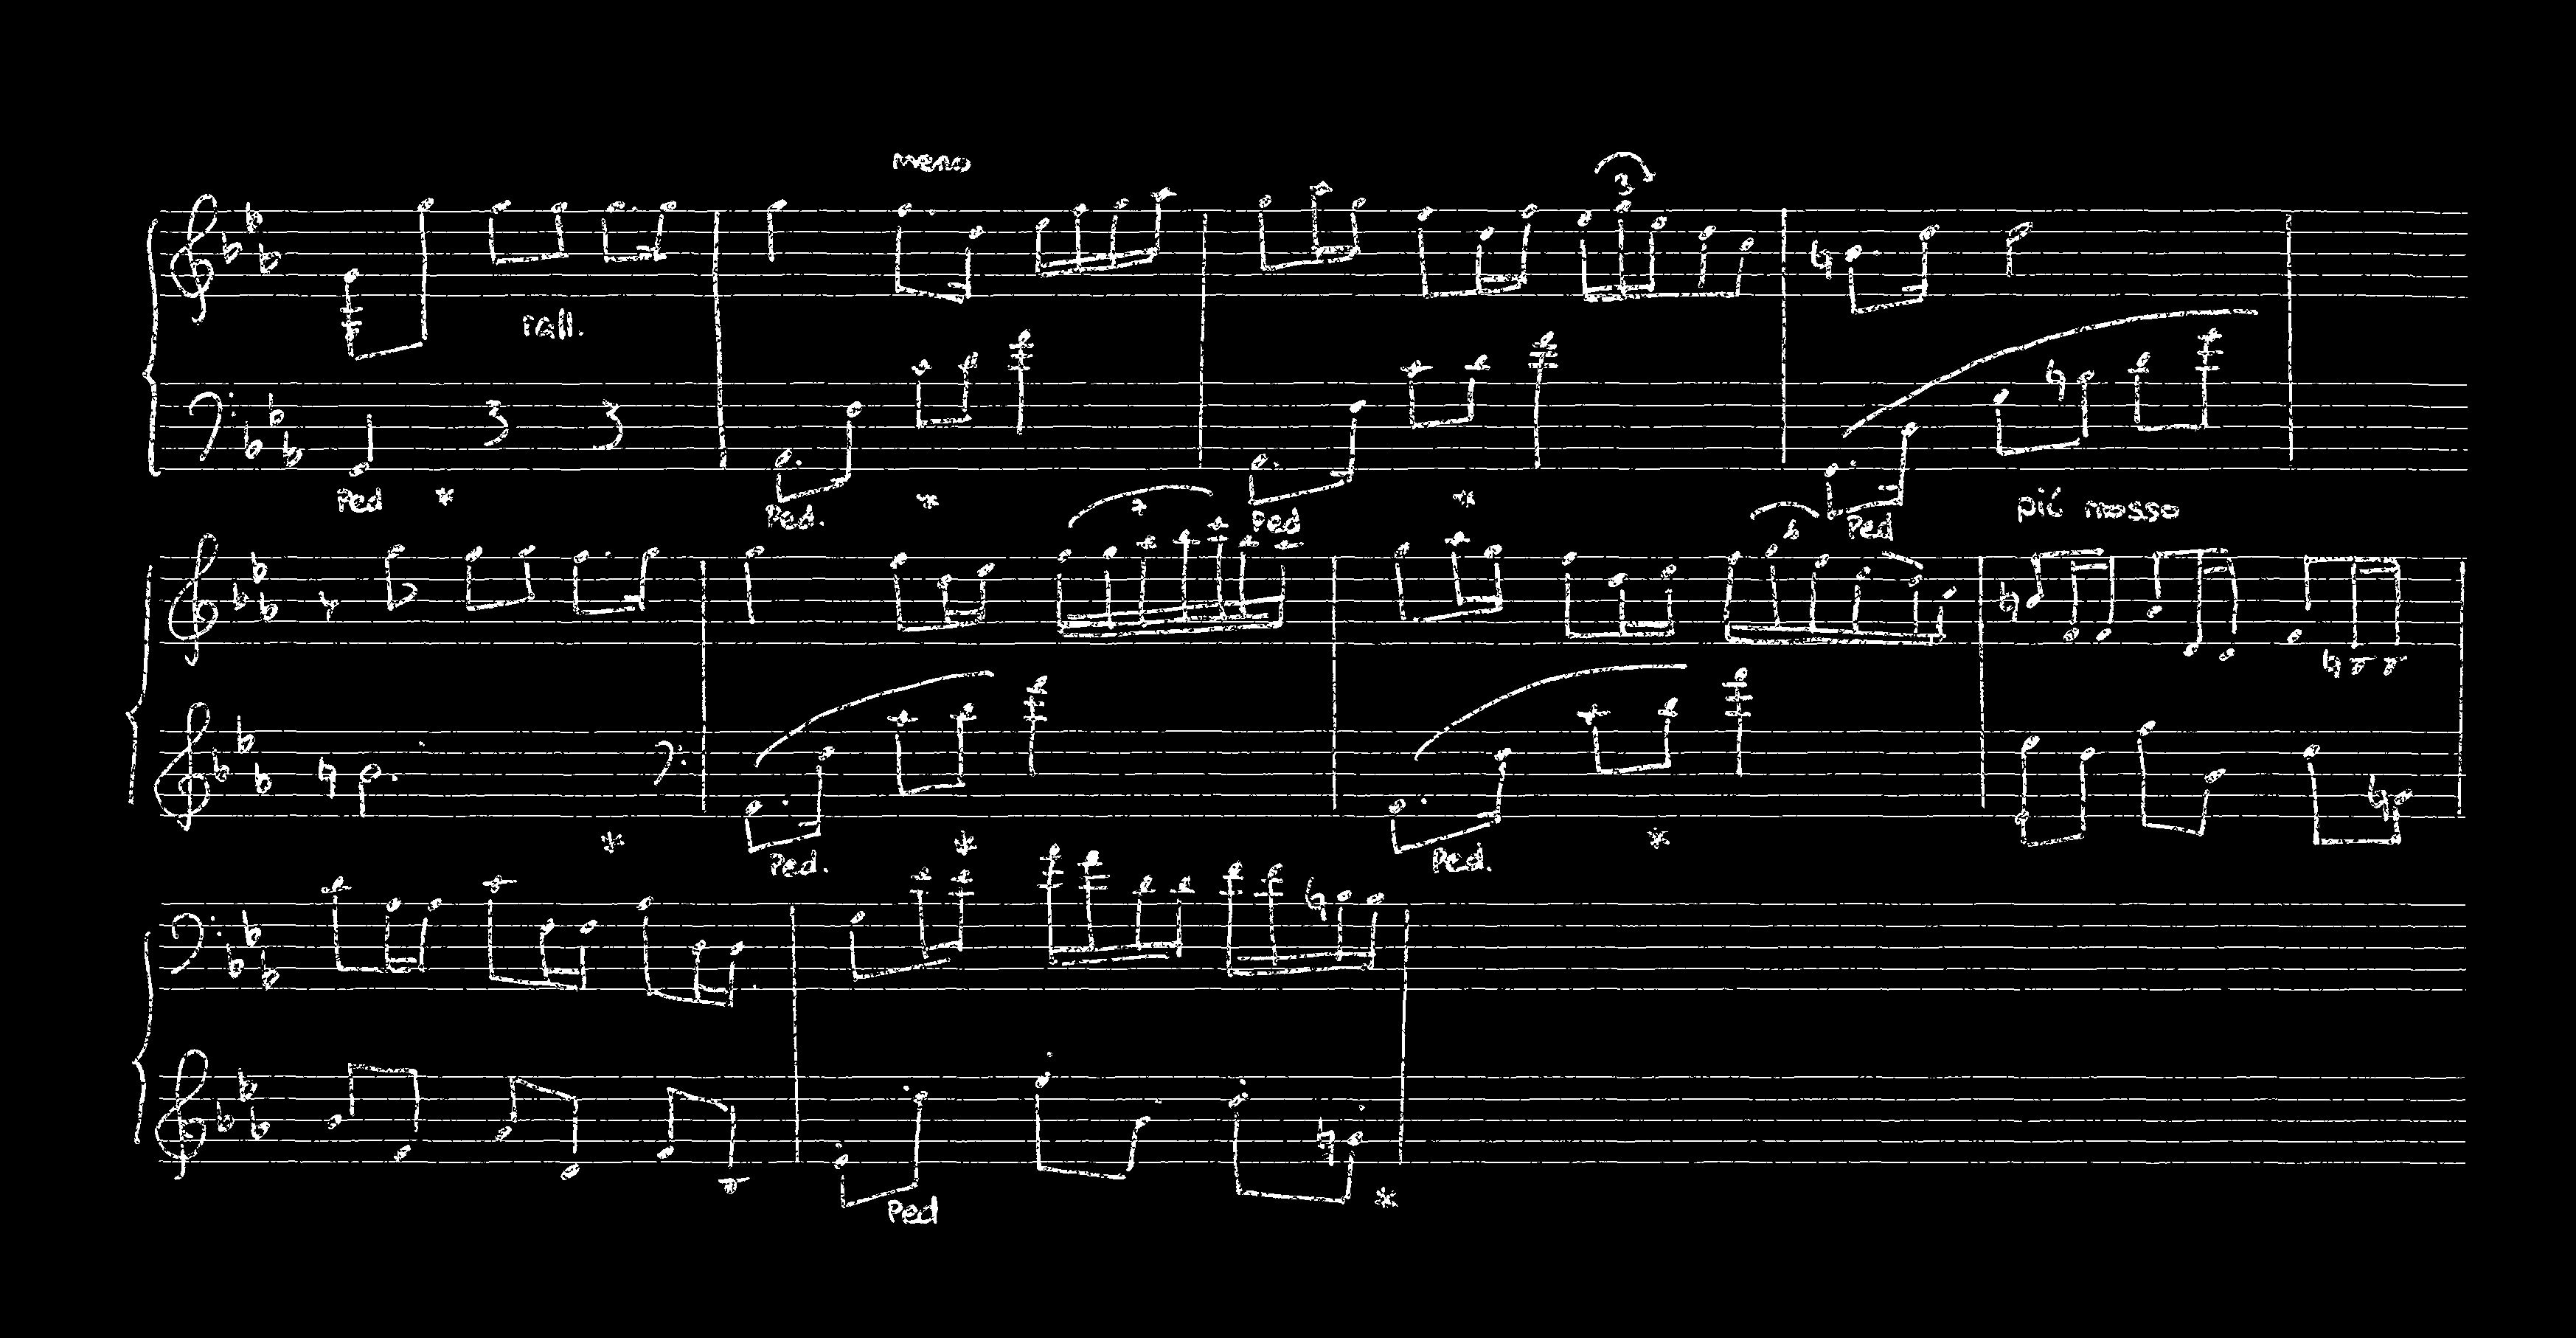 meno
3
rall.
Ped *
Ped. * Ped * Ped
7
6
più mosso
*
Ped. * Ped. *
Ped *